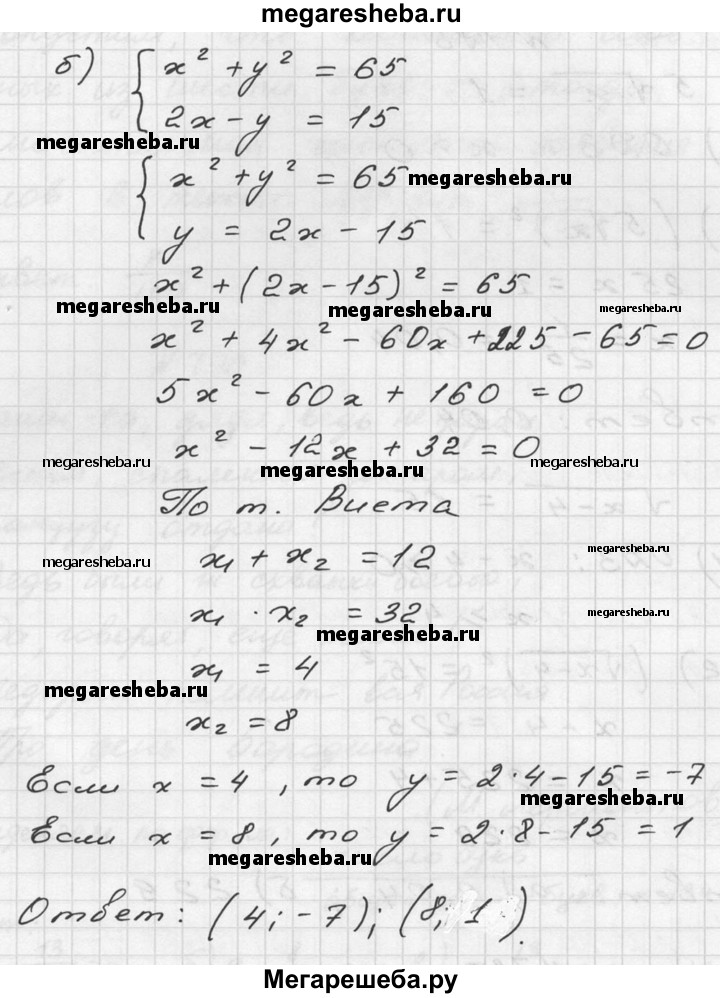 megaresheba.ru
б) { x² + y² = 65
2x - y = 15
megaresheba.ru
{ x² + y² = 65 megaresheba.ru
y = 2x - 15
x² + (2x - 15)² = 65
megaresheba.ru megaresheba.ru megaresheba.ru
x² + 4x² - 60x + 225 - 65 = 0
5x² - 60x + 160 = 0
x² - 12x + 32 = 0
megaresheba.ru megaresheba.ru megaresheba.ru
По т. Виета
x₁ + x₂ = 12
megaresheba.ru megaresheba.ru
x₁ · x₂ = 32
megaresheba.ru megaresheba.ru
x₁ = 4
megaresheba.ru
x₂ = 8
Если x = 4, то y = 2·4 - 15 = -7
megaresheba.ru
Если x = 8, то y = 2·8 - 15 = 1
megaresheba.ru
Ответ: (4; -7); (8; 1).
Мегарешеба.ру